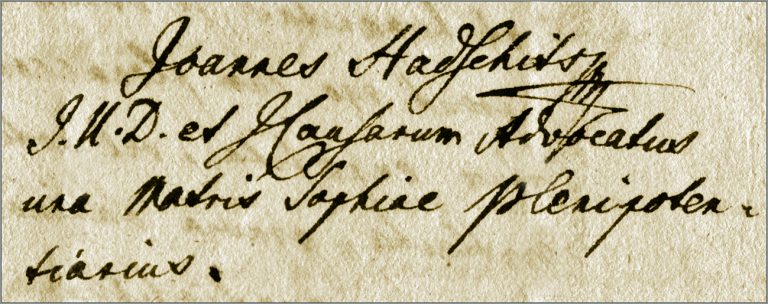 Joannes Hadschits
J.U.D. et Causarum Advocatus
una Matris Sophiae Plenipoten-
tiarius.